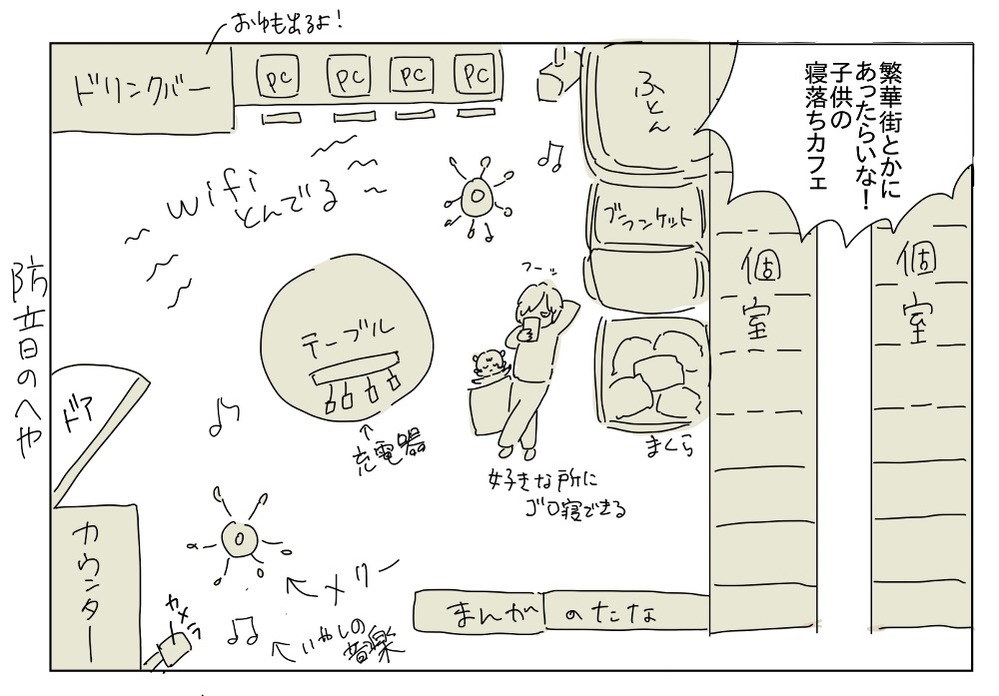 おゆも出るよ!
ドリンクバー
PC
PC
PC
PC
ふとん
繁華街とかに
あったらいな!
子供の
寝落ちカフェ
wifi
とんでる
ブランケット
個室
個室
防音のへや
フーッ
テーブル
充電器
ドア
まくら
好きな所に
ゴロ寝できる
カウンター
メリー
カメラ
いやしの
音楽
まんがのたな